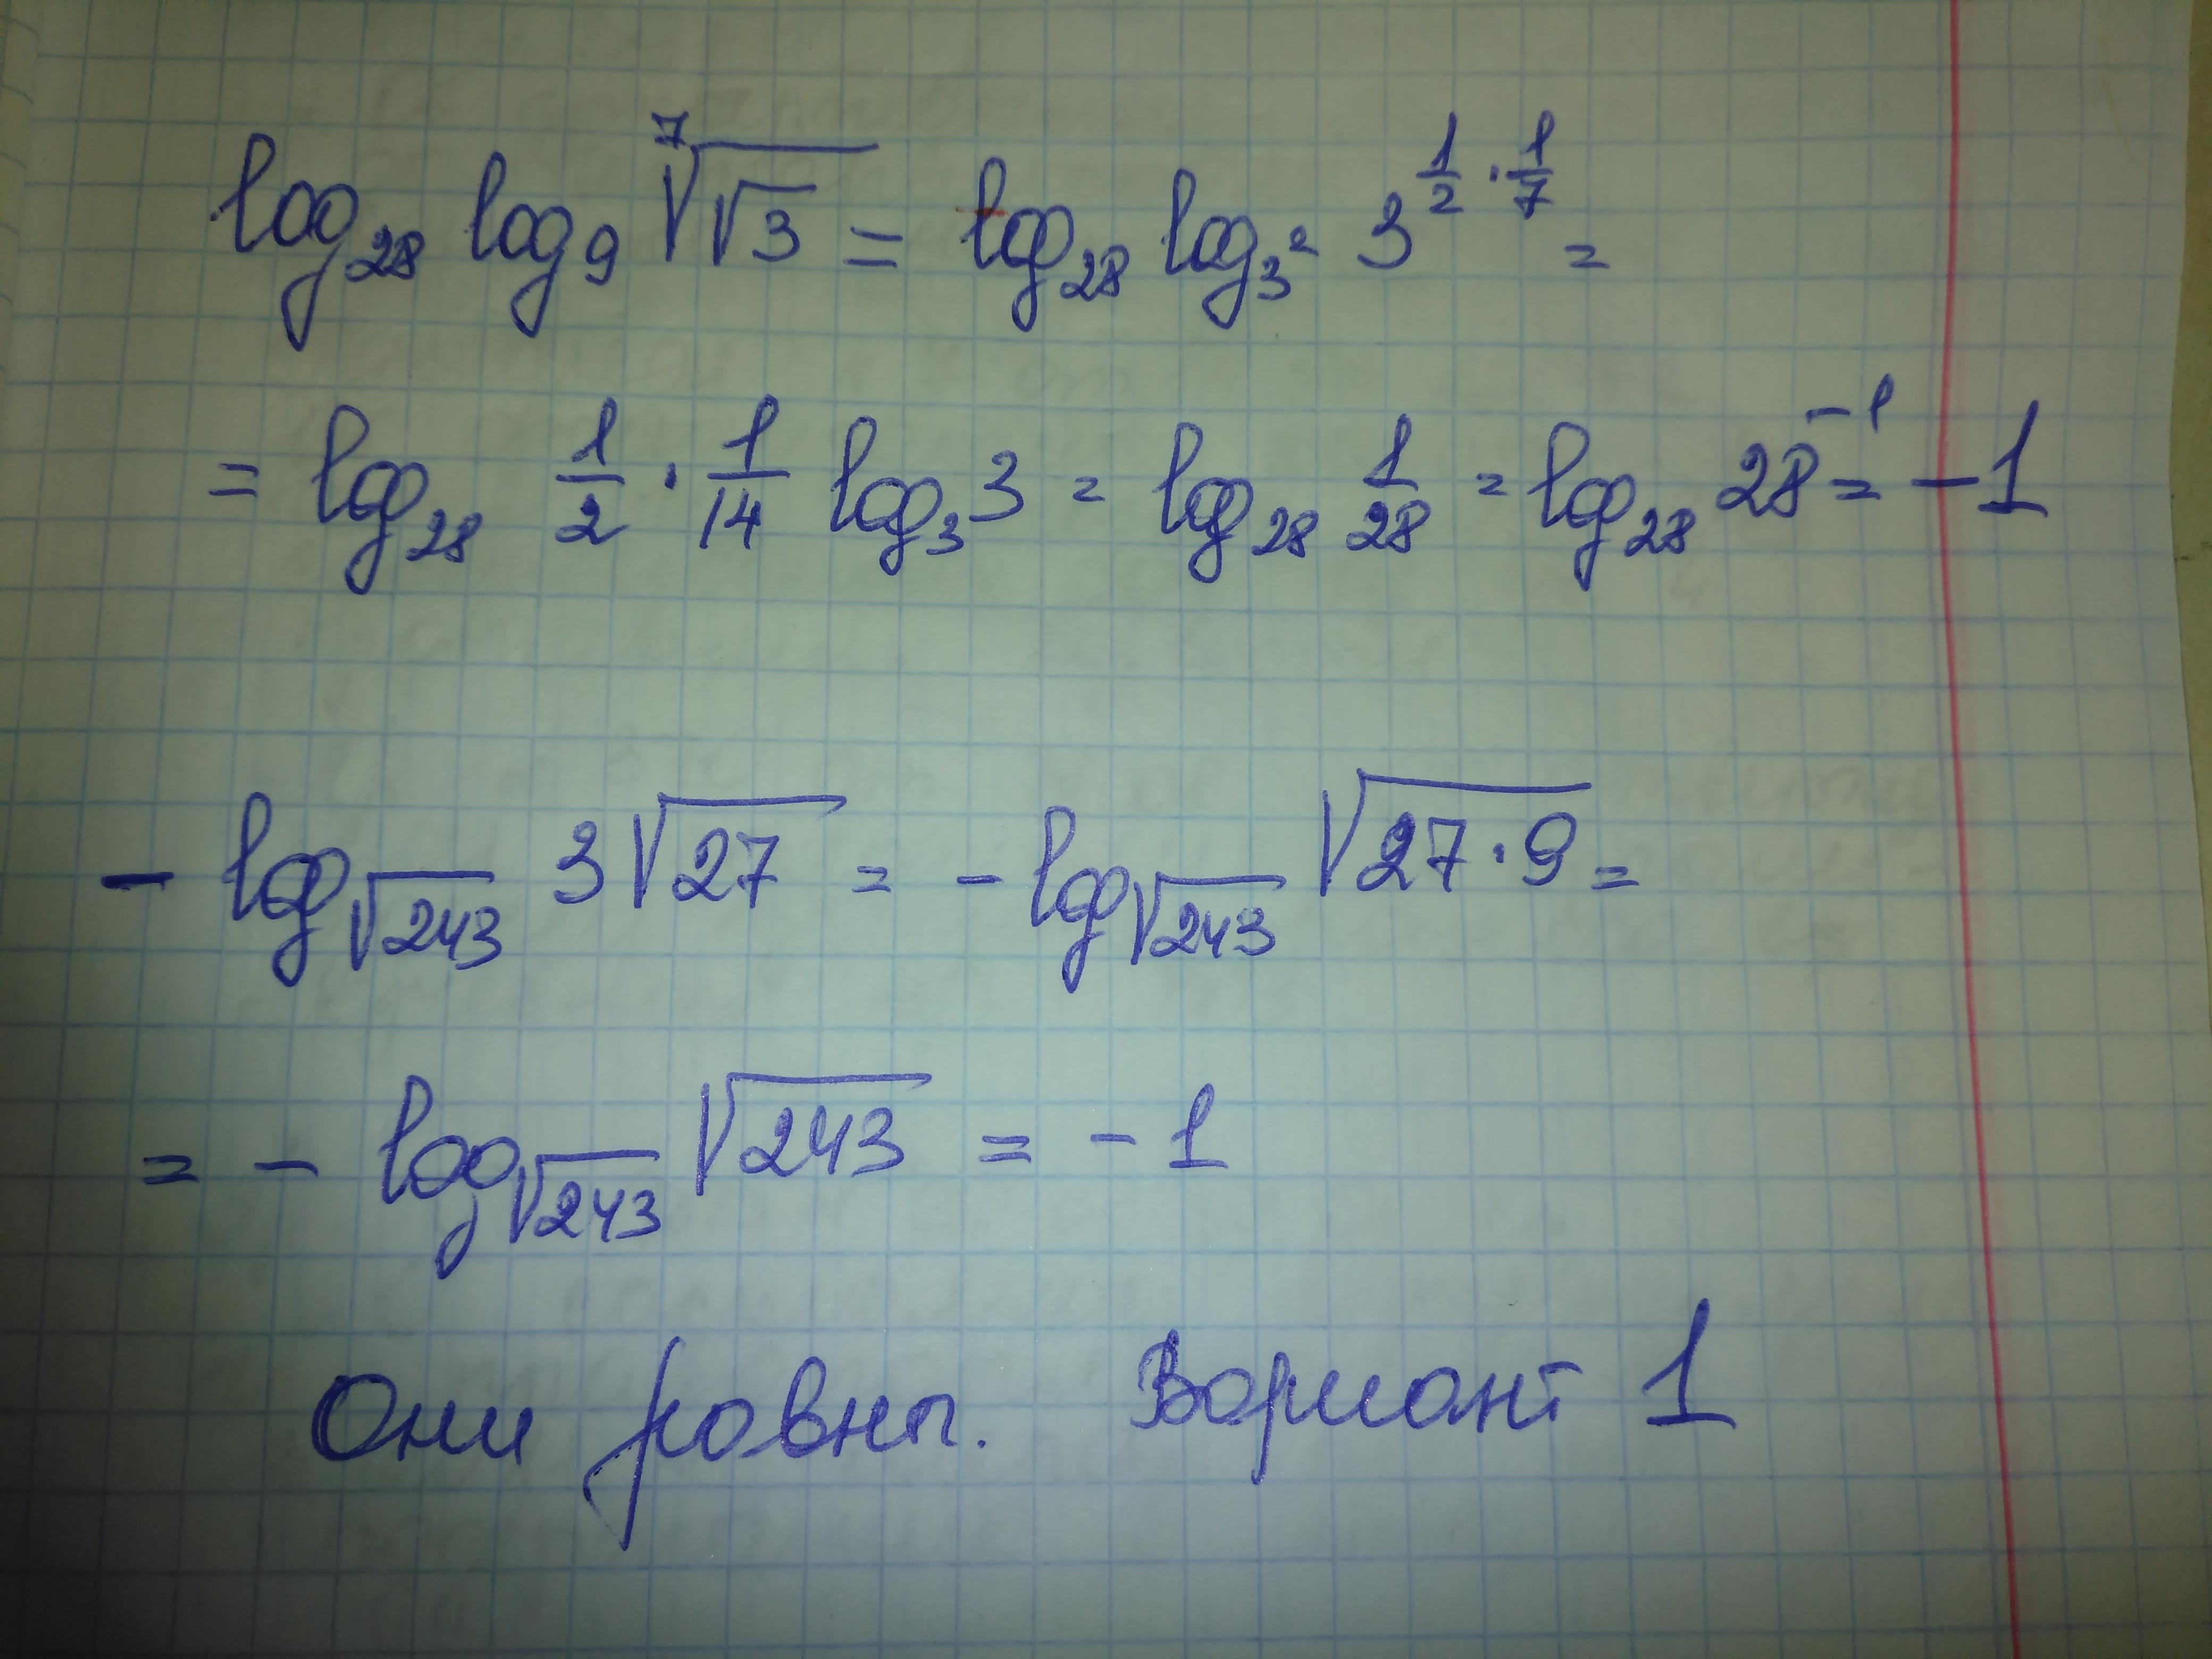 log₂₈ log₉ ⁷√(√3) = log₂₈ log_{3²} 3^{1/2 · 1/7} =
= log₂₈ 1/2 · 1/14 log₃ 3 = log₂₈ 1/28 = log₂₈ 28⁻¹ = -1
- log_{√243} 3√27 = - log_{√243} √(27·9) =
= - log_{√243} √243 = -1
Они равны. Вариант 1